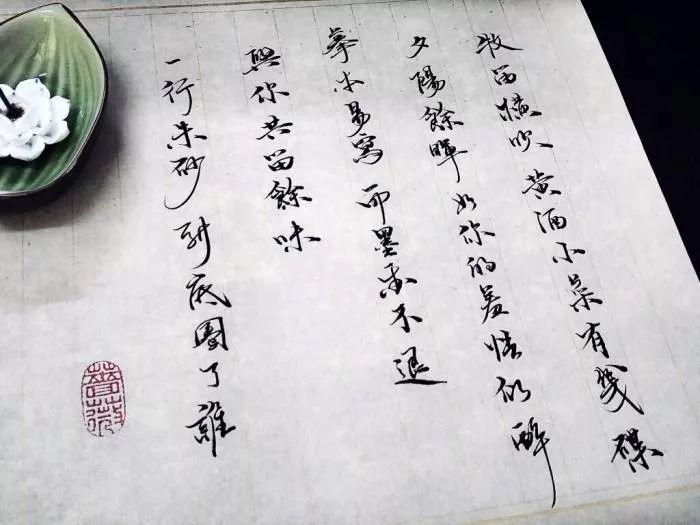 牧笛橫吹 黃酒小菜有幾碟
夕陽餘暉 如你的羞怯似醉
摹本易寫 而墨香不退
與你共留餘味
一行朱砂 到底圈了誰
薔薇